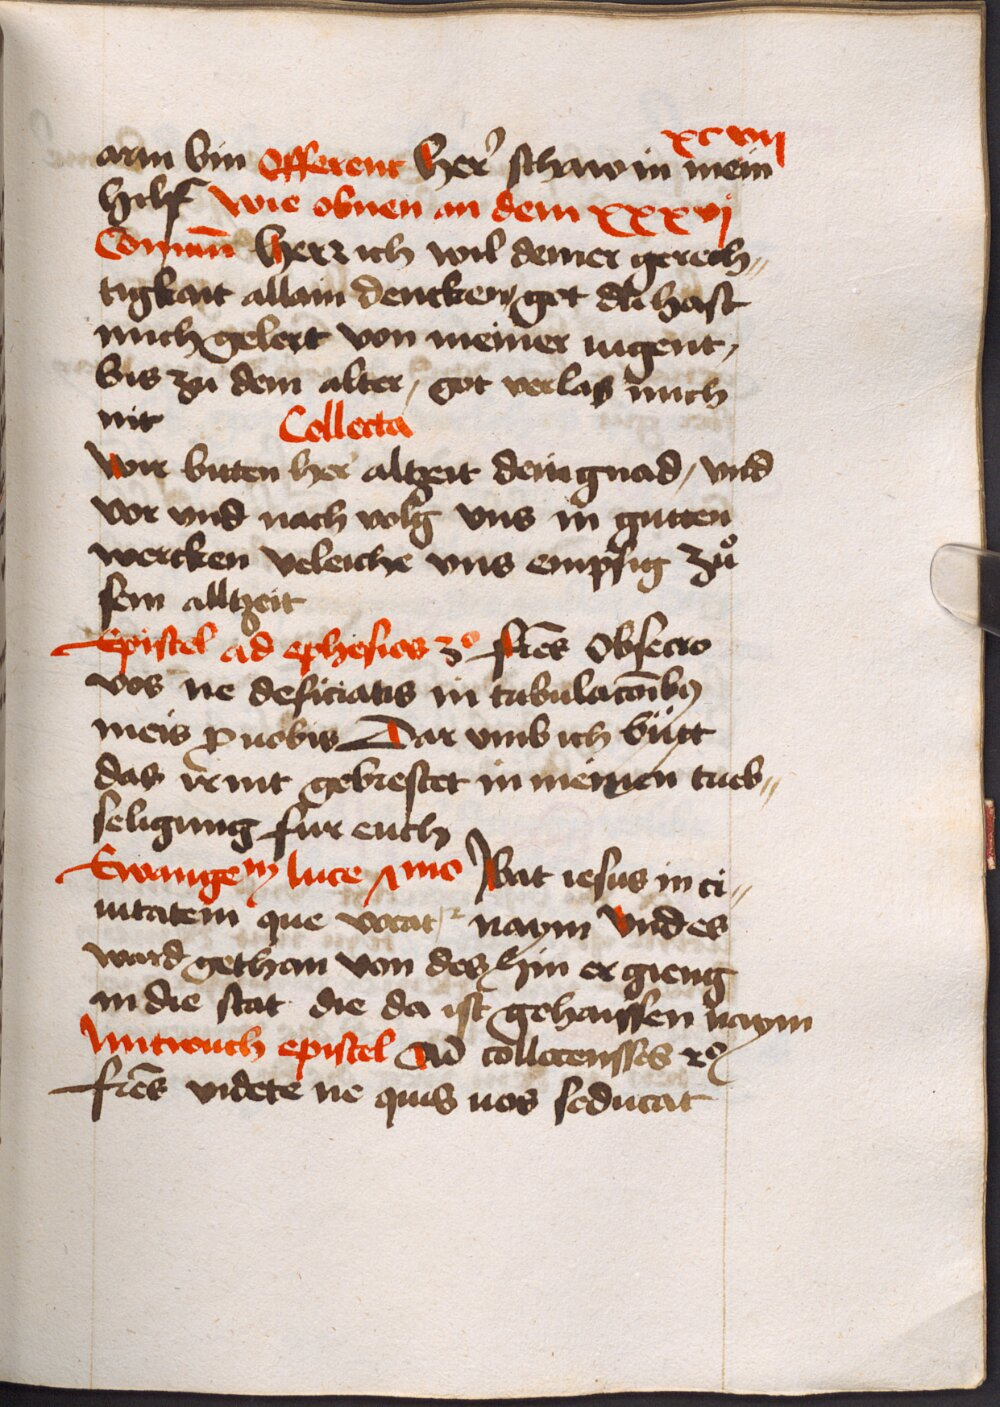 xcvij
arm bin Offerent Her' schaw in mein
hilf wie obnen an dem xxxvj
Comun̄ Herr ich wil deiner gerech〃
tigkait allain dencken, got du hast
mich gelert von meiner iugent,
bis zu dem alter, got verlas mich
nit Collecta
Wir bitten her altzeit dein gnad, vnd
vor vnd nach volg vns in gutten
wercken v'leiche vns empsig zů
sein alltzeit
Epistel ad ephesios 3º fr̄es Obsecro
vos ne deficiatis in tribulacōibꝰ
meis ꝓ uobis Dar vmb ich bütt
das ir nit gebrestet in meinen trieb〃
seligung fur euch
Ewangem luce mo Ibat iesus in ci〃
uitatem que vocatr naym Vnd es
ward gethon von des hin er gieng
in die stat die da ist gehaissen naym
Mitwuch epistel Ad collocensses 2º
fr̄es videte ne quis uos seducat